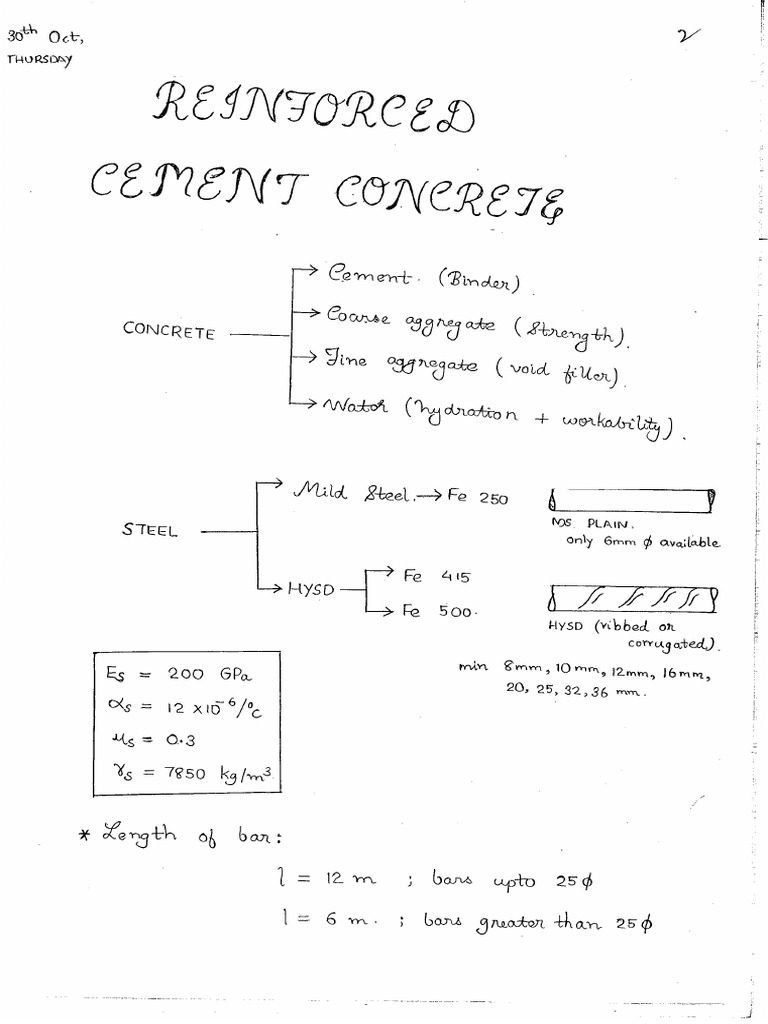 30th Oct,
THURSDAY
2
REINFORCED
CEMENT CONCRETE
CONCRETE
Cement. (Binder).
Coarse aggregate (Strength).
Fine aggregate (void filler).
Water (hydration + workability).
STEEL
Mild Steel. → Fe 250
MS PLAIN.
only 6mm ϕ available
HYSD
Fe 415
Fe 500.
HYSD (ribbed or
corrugated).
min 8mm, 10mm, 12mm, 16mm,
20, 25, 32, 36 mm.
Es = 200 GPa
αs = 12 x10⁻⁶/°C
μs = 0.3
γs = 7850 kg/m³
* Length of bar:
l = 12 m ; bars upto 25ϕ
l = 6 m. ; bars greater than 25ϕ